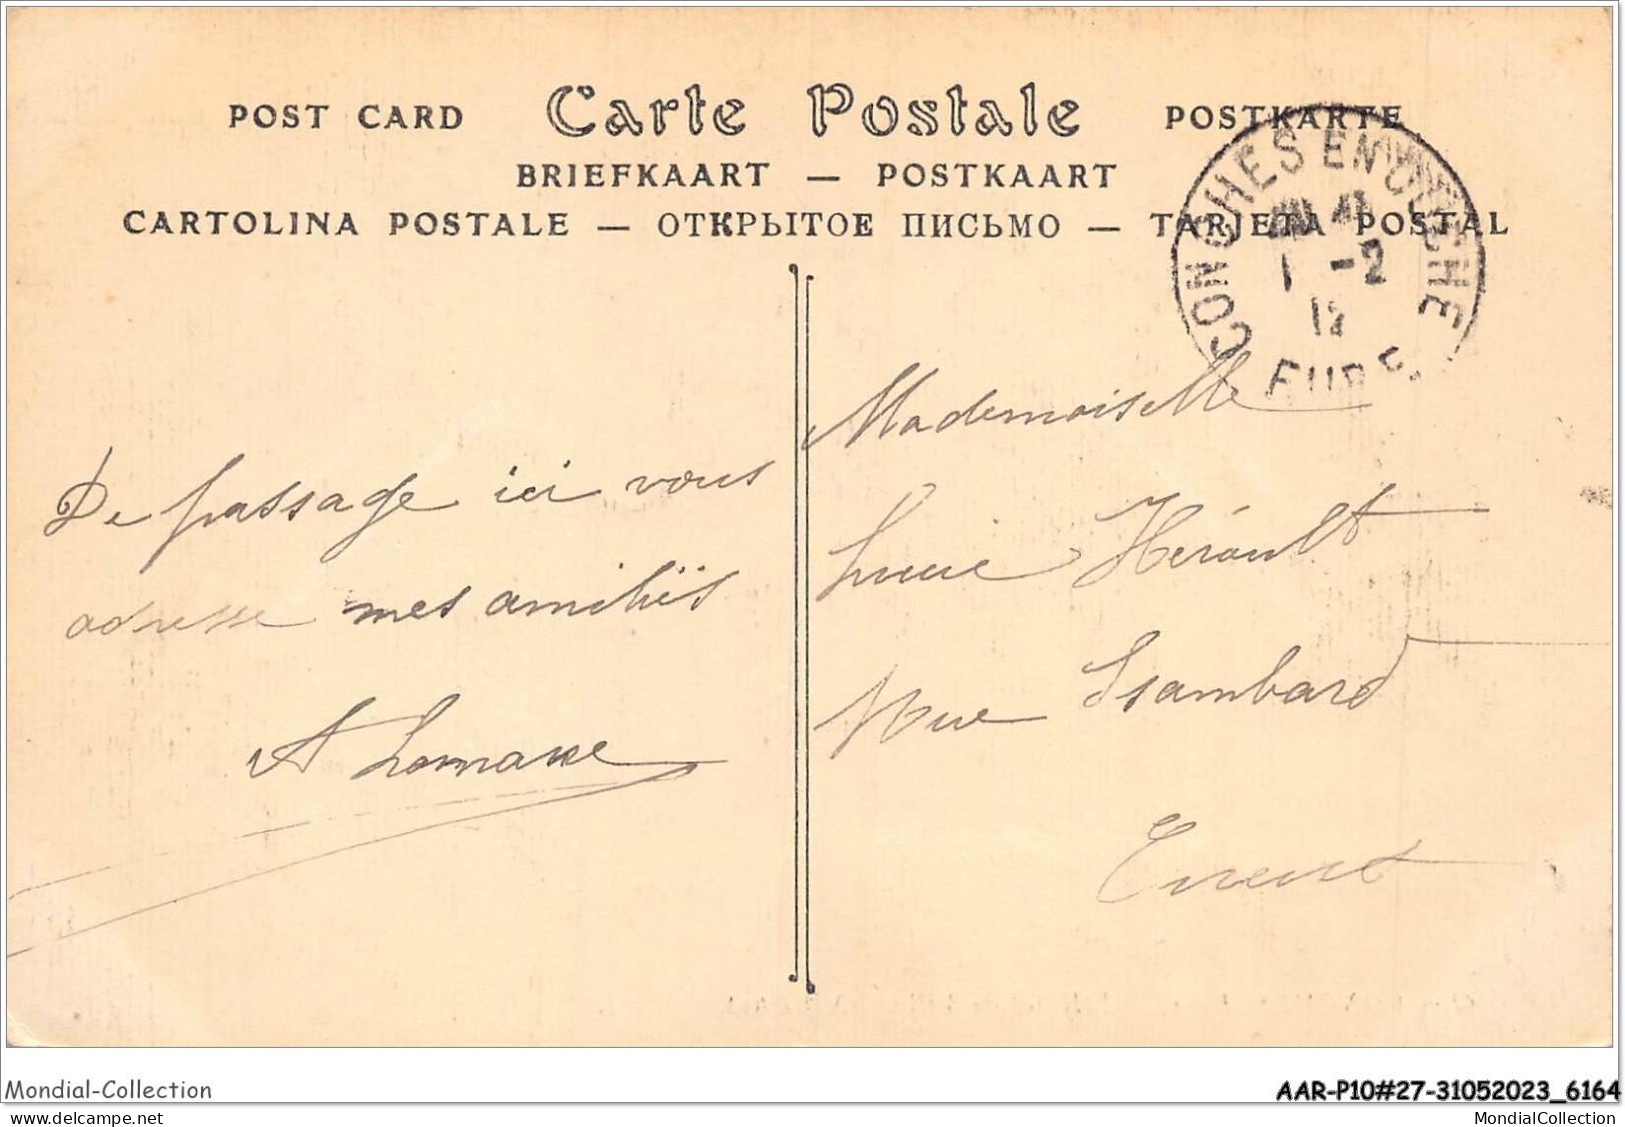 POST CARD Carte Postale POSTKARTE
BRIEFKAART — POSTKAART
CARTOLINA POSTALE — ОТКРЫТОЕ ПИСЬМО — TARJETA POSTAL
CONCHES EN OUCHE
1 -2
12
EURE
De passage ici vous
adresse mes amitiés
A Lomasse
Mademoiselle
Lucie Hérault
Rue Isambard
Evreux
Mondial-Collection
AAR-P10#27-31052023_6164
MondialCollection